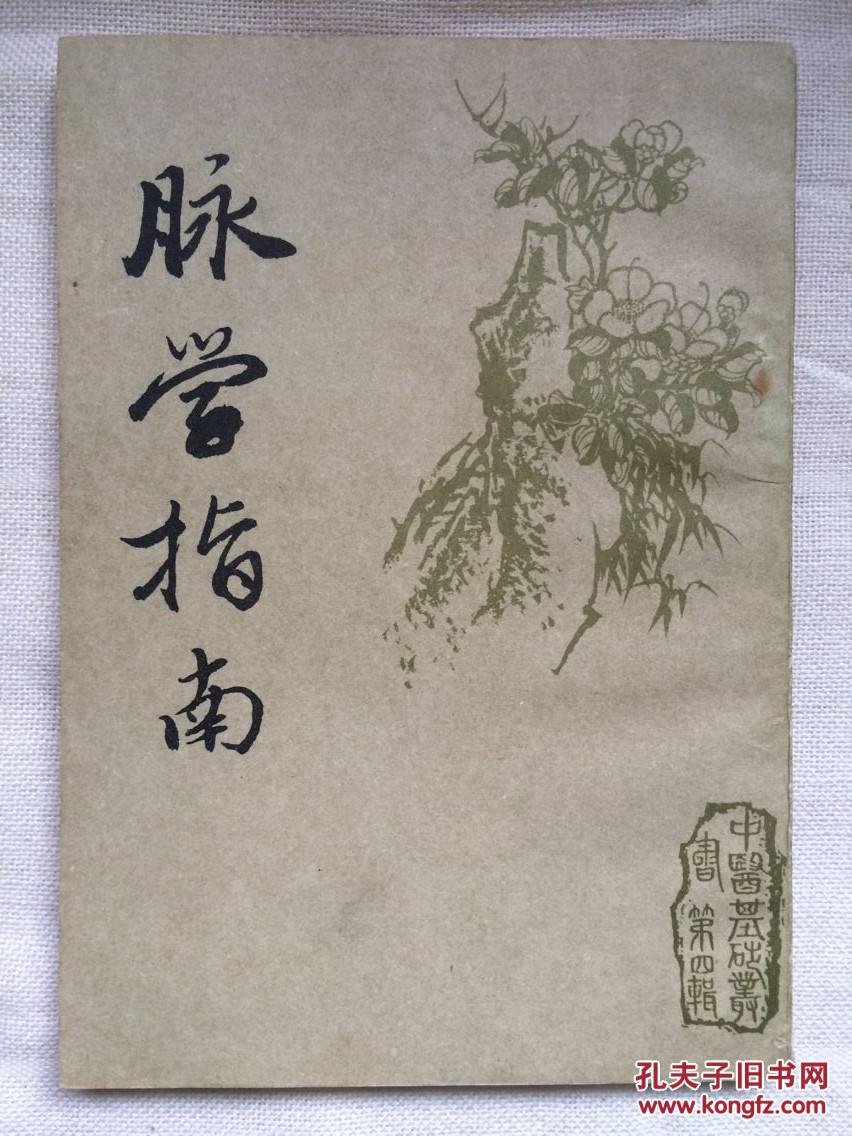 脉学指南
中醫基础叢
書 第四輯
孔夫子旧书网
www.kongfz.com